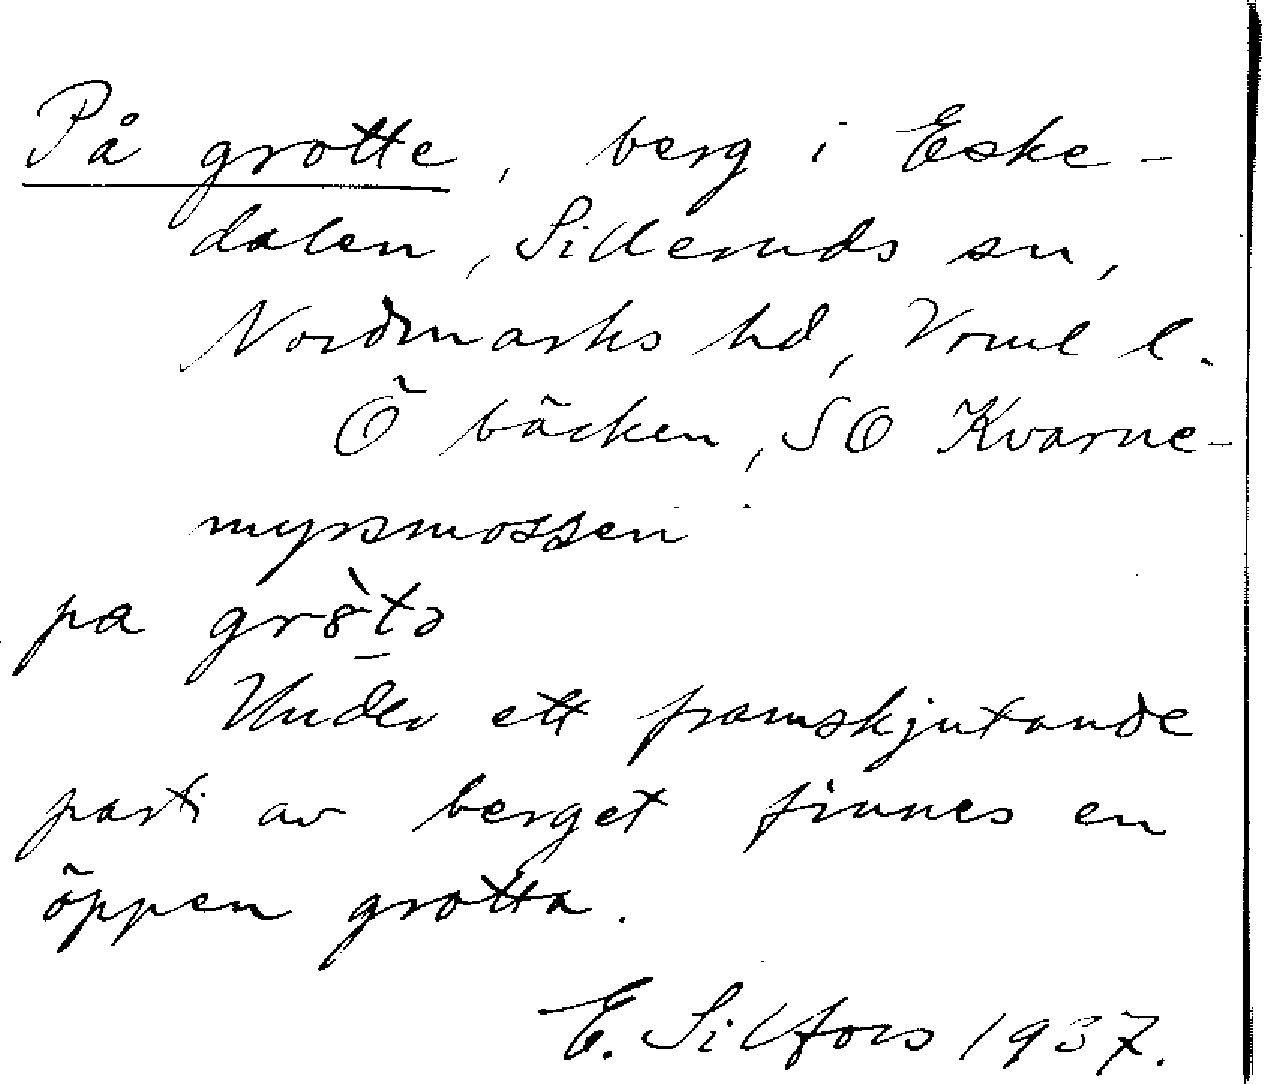 På grotte, berg i Eske-
dalen, Silleruds sn,
Nordmarks hd, Vrml l.
Ö bäcken, SO Kvarne-
myrsmossen
pa gr8̀t̲ə
Under ett framskjutande
parti av berget finnes en
öppen grotta.
E. Silfors 1937.